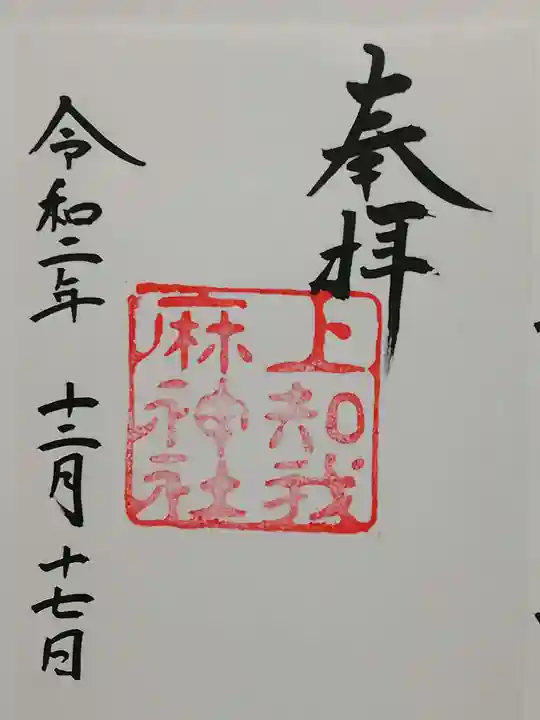 奉拝
上知我
麻神社
令和二年 十二月十七日